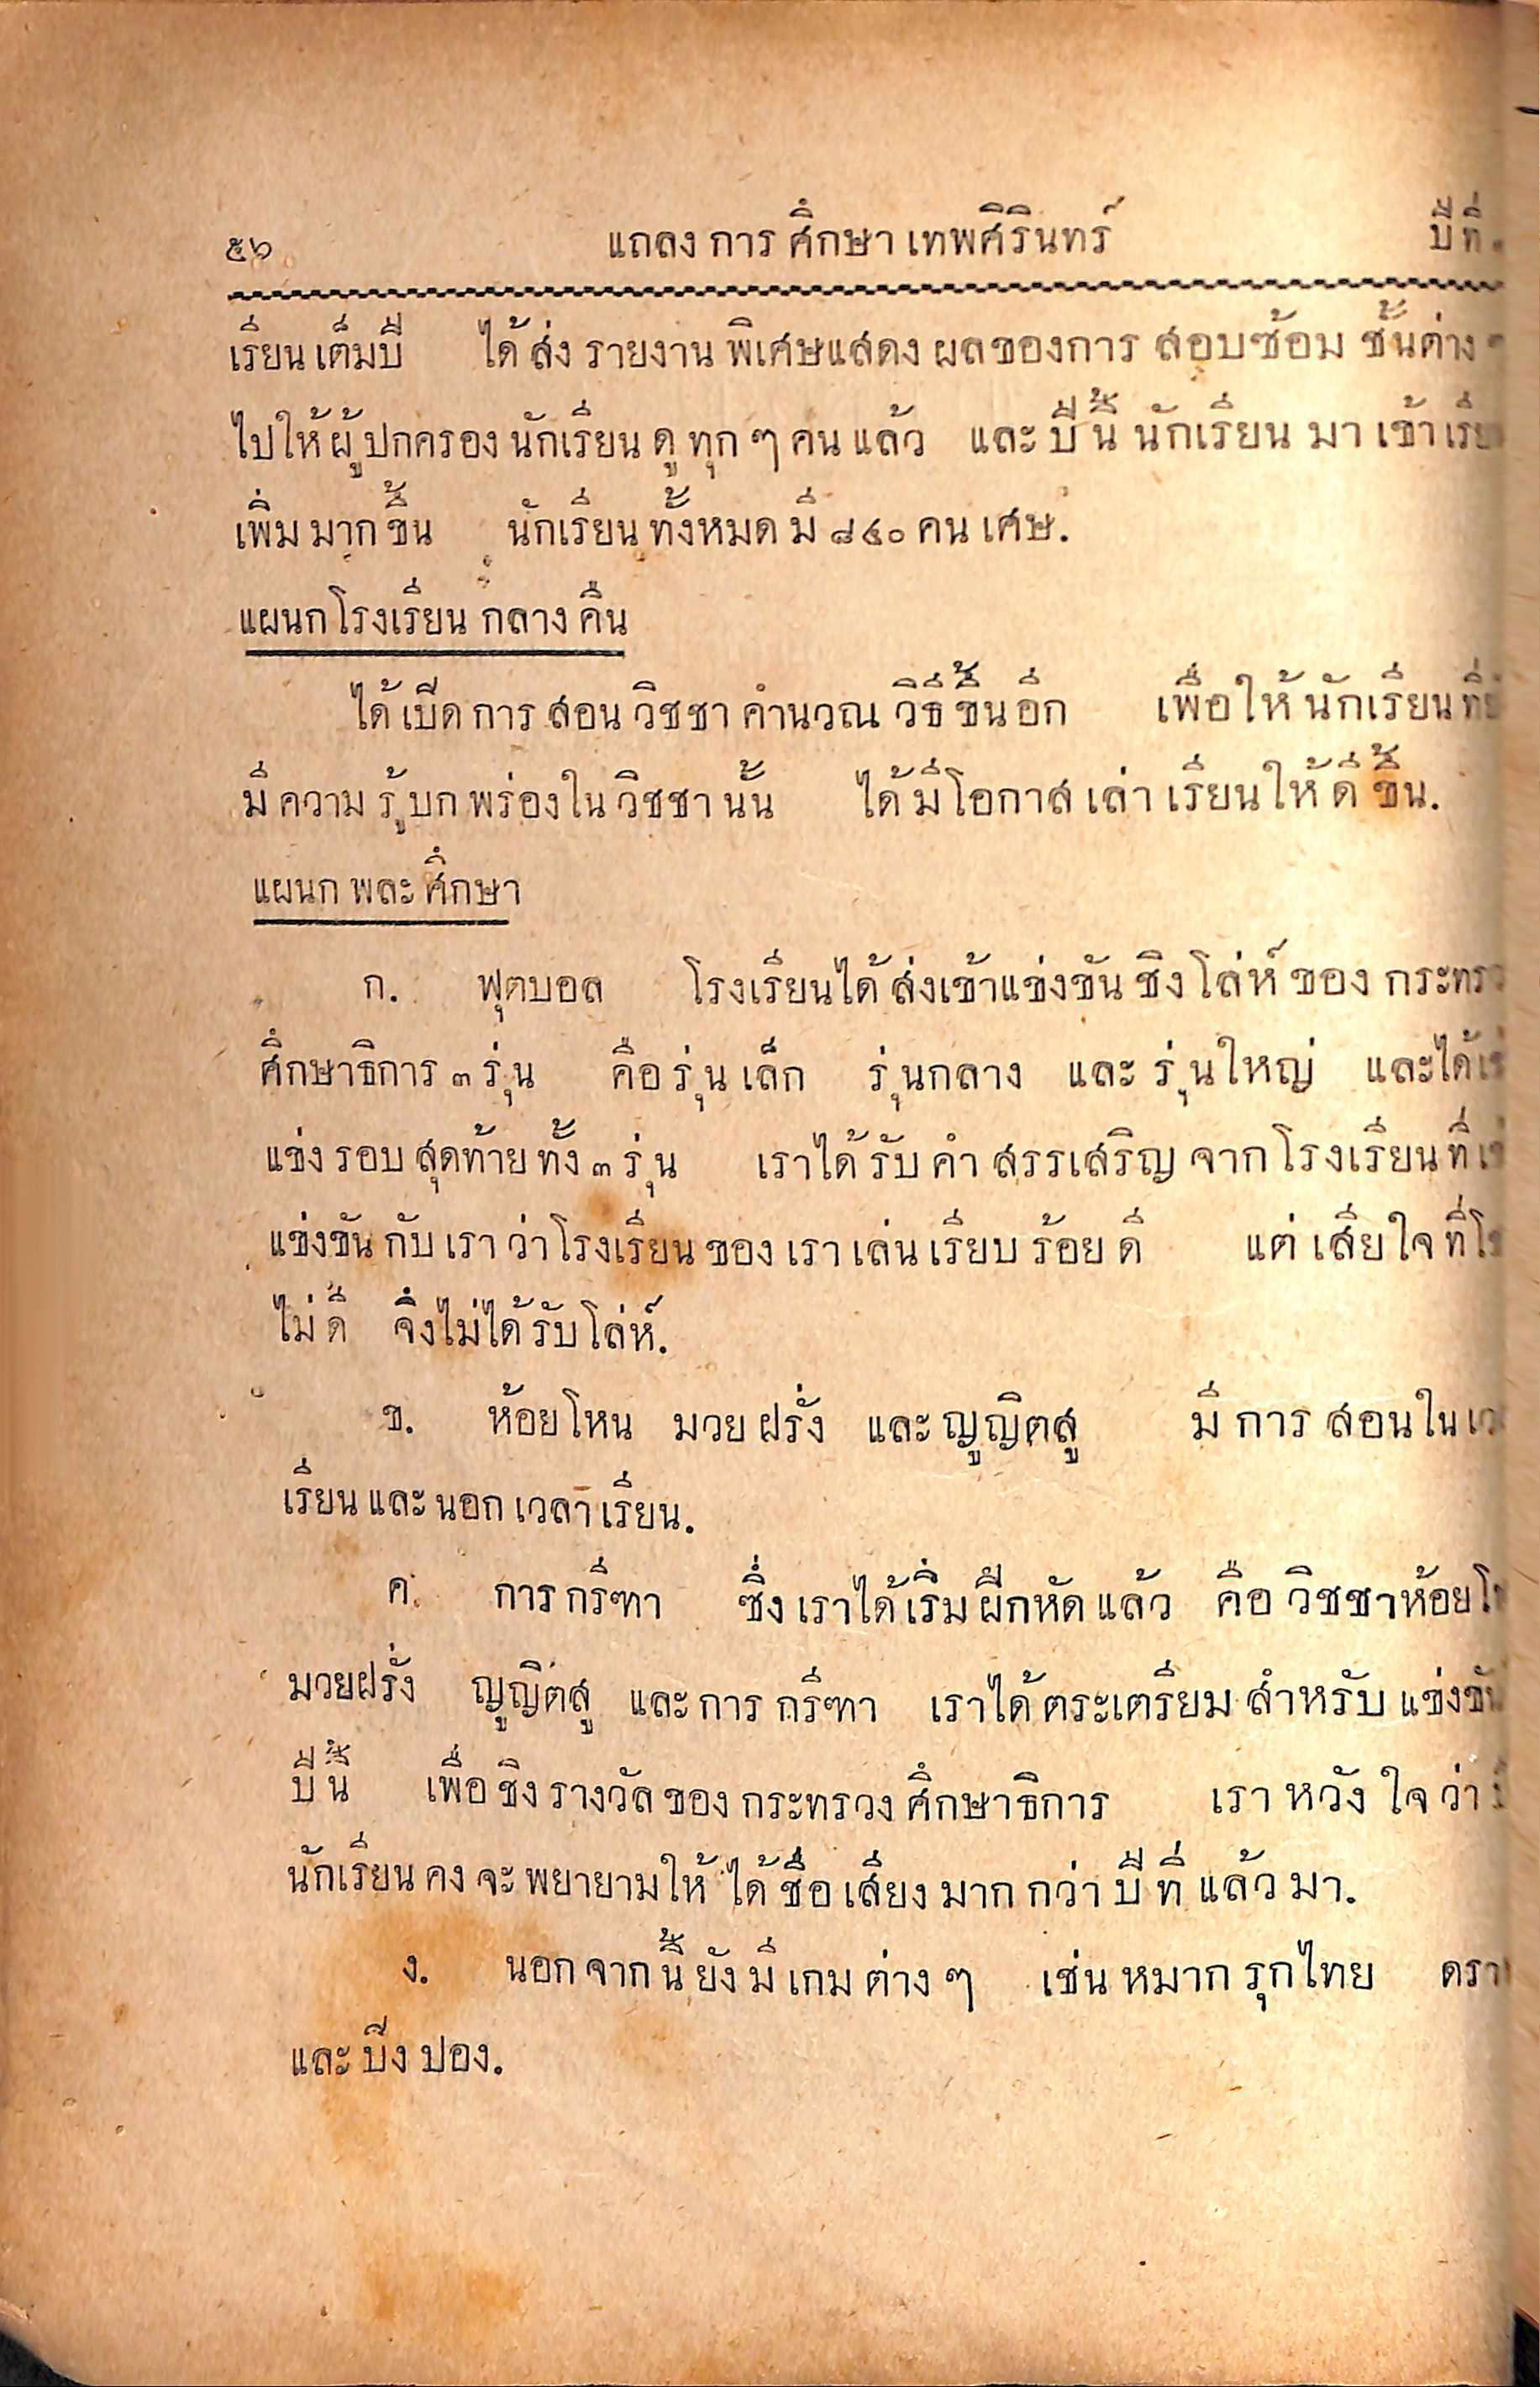 ๕๖ แถลงการศึกษาเทพศิรินทร์ ปีที่
เรียนเต็มปี ได้ส่งรายงานพิเศษแสดงผลของการสอบซ้อมชั้นต่าง ๆ
ไปให้ผู้ปกครองนักเรียนดูทุก ๆ คนแล้ว และปีนี้นักเรียนมาเข้า
เพิ่มมากขึ้น นักเรียนทั้งหมดมี ๘๔๐ คนเศษ.
แผนกโรงเรียนกลางคืน
ได้เปิดการสอนวิชชาคำนวณวิธีขึ้นอีก เพื่อให้นักเรียน
มีความรู้บกพร่องในวิชชานั้น ได้มีโอกาสเล่าเรียนให้ดีขึ้น.
แผนกพละศึกษา
ก. ฟุตบอล โรงเรียนได้ส่งเข้าแข่งขันชิงโล่ห์ของ
ศึกษาธิการ ๓ รุ่น คือรุ่นเล็ก รุ่นกลาง และรุ่นใหญ่ และได้
แข่งรอบสุดท้ายทั้ง ๓ รุ่น เราได้รับคำสรรเสริญจากโรงเรียนที่
แข่งขันกับเราว่าโรงเรียนของเราเล่นเรียบร้อยดี แต่เสียใจที่
ไม่ดี จึงไม่ได้รับโล่ห์.
ข. ห้อยโหน มวยฝรั่ง และญูญิตสู มีการสอนใน
เรียนและนอกเวลาเรียน.
ค. การกรีฑา ซึ่งเราได้เริ่มฝึกหัดแล้ว คือวิชชาห้อย
มวยฝรั่ง ญูญิตสู และการกรีฑา เราได้ตระเตรียมสำหรับแข่งขัน
ปีนี้ เพื่อชิงรางวัลของกระทรวงศึกษาธิการ เราหวังใจว่า
นักเรียนคงจะพยายามให้ได้ชื่อเสียงมากกว่าปีที่แล้วมา.
ง. นอกจากนี้ยังมีเกมต่าง ๆ เช่นหมากรุกไทย
และปิงปอง.